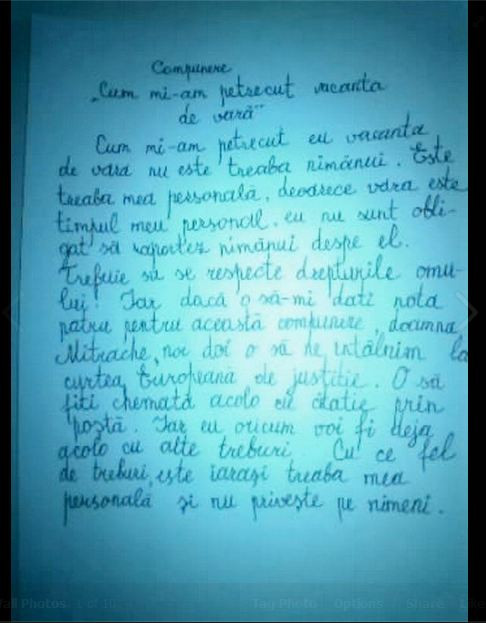 Compunere
„Cum mi-am petrecut vacanta
de vară"
Cum mi-am petrecut eu vacanta
de vară nu este treaba nimănui. Este
treaba mea personală, deoarece vara este
timpul meu personal, eu nu sunt obli-
gat să raportez nimănui despe el.
Trebuie să se respecte drepturile omu-
lui! Iar dacă o să-mi dati nota
patru pentru această compunere, doamna
Mitrache, noi doi o să ne întâlnim la
curtea Europeană de justitie. O să
fiti chemată acolo cu citatie prin
postă. Iar eu oricum voi fi deja
acolo cu alte treburi. Cu ce fel
de treburi, este iarași treaba mea
personală și nu privește pe nimeni.
Wall Photos 1 of 10 Tag Photo Options Share Like